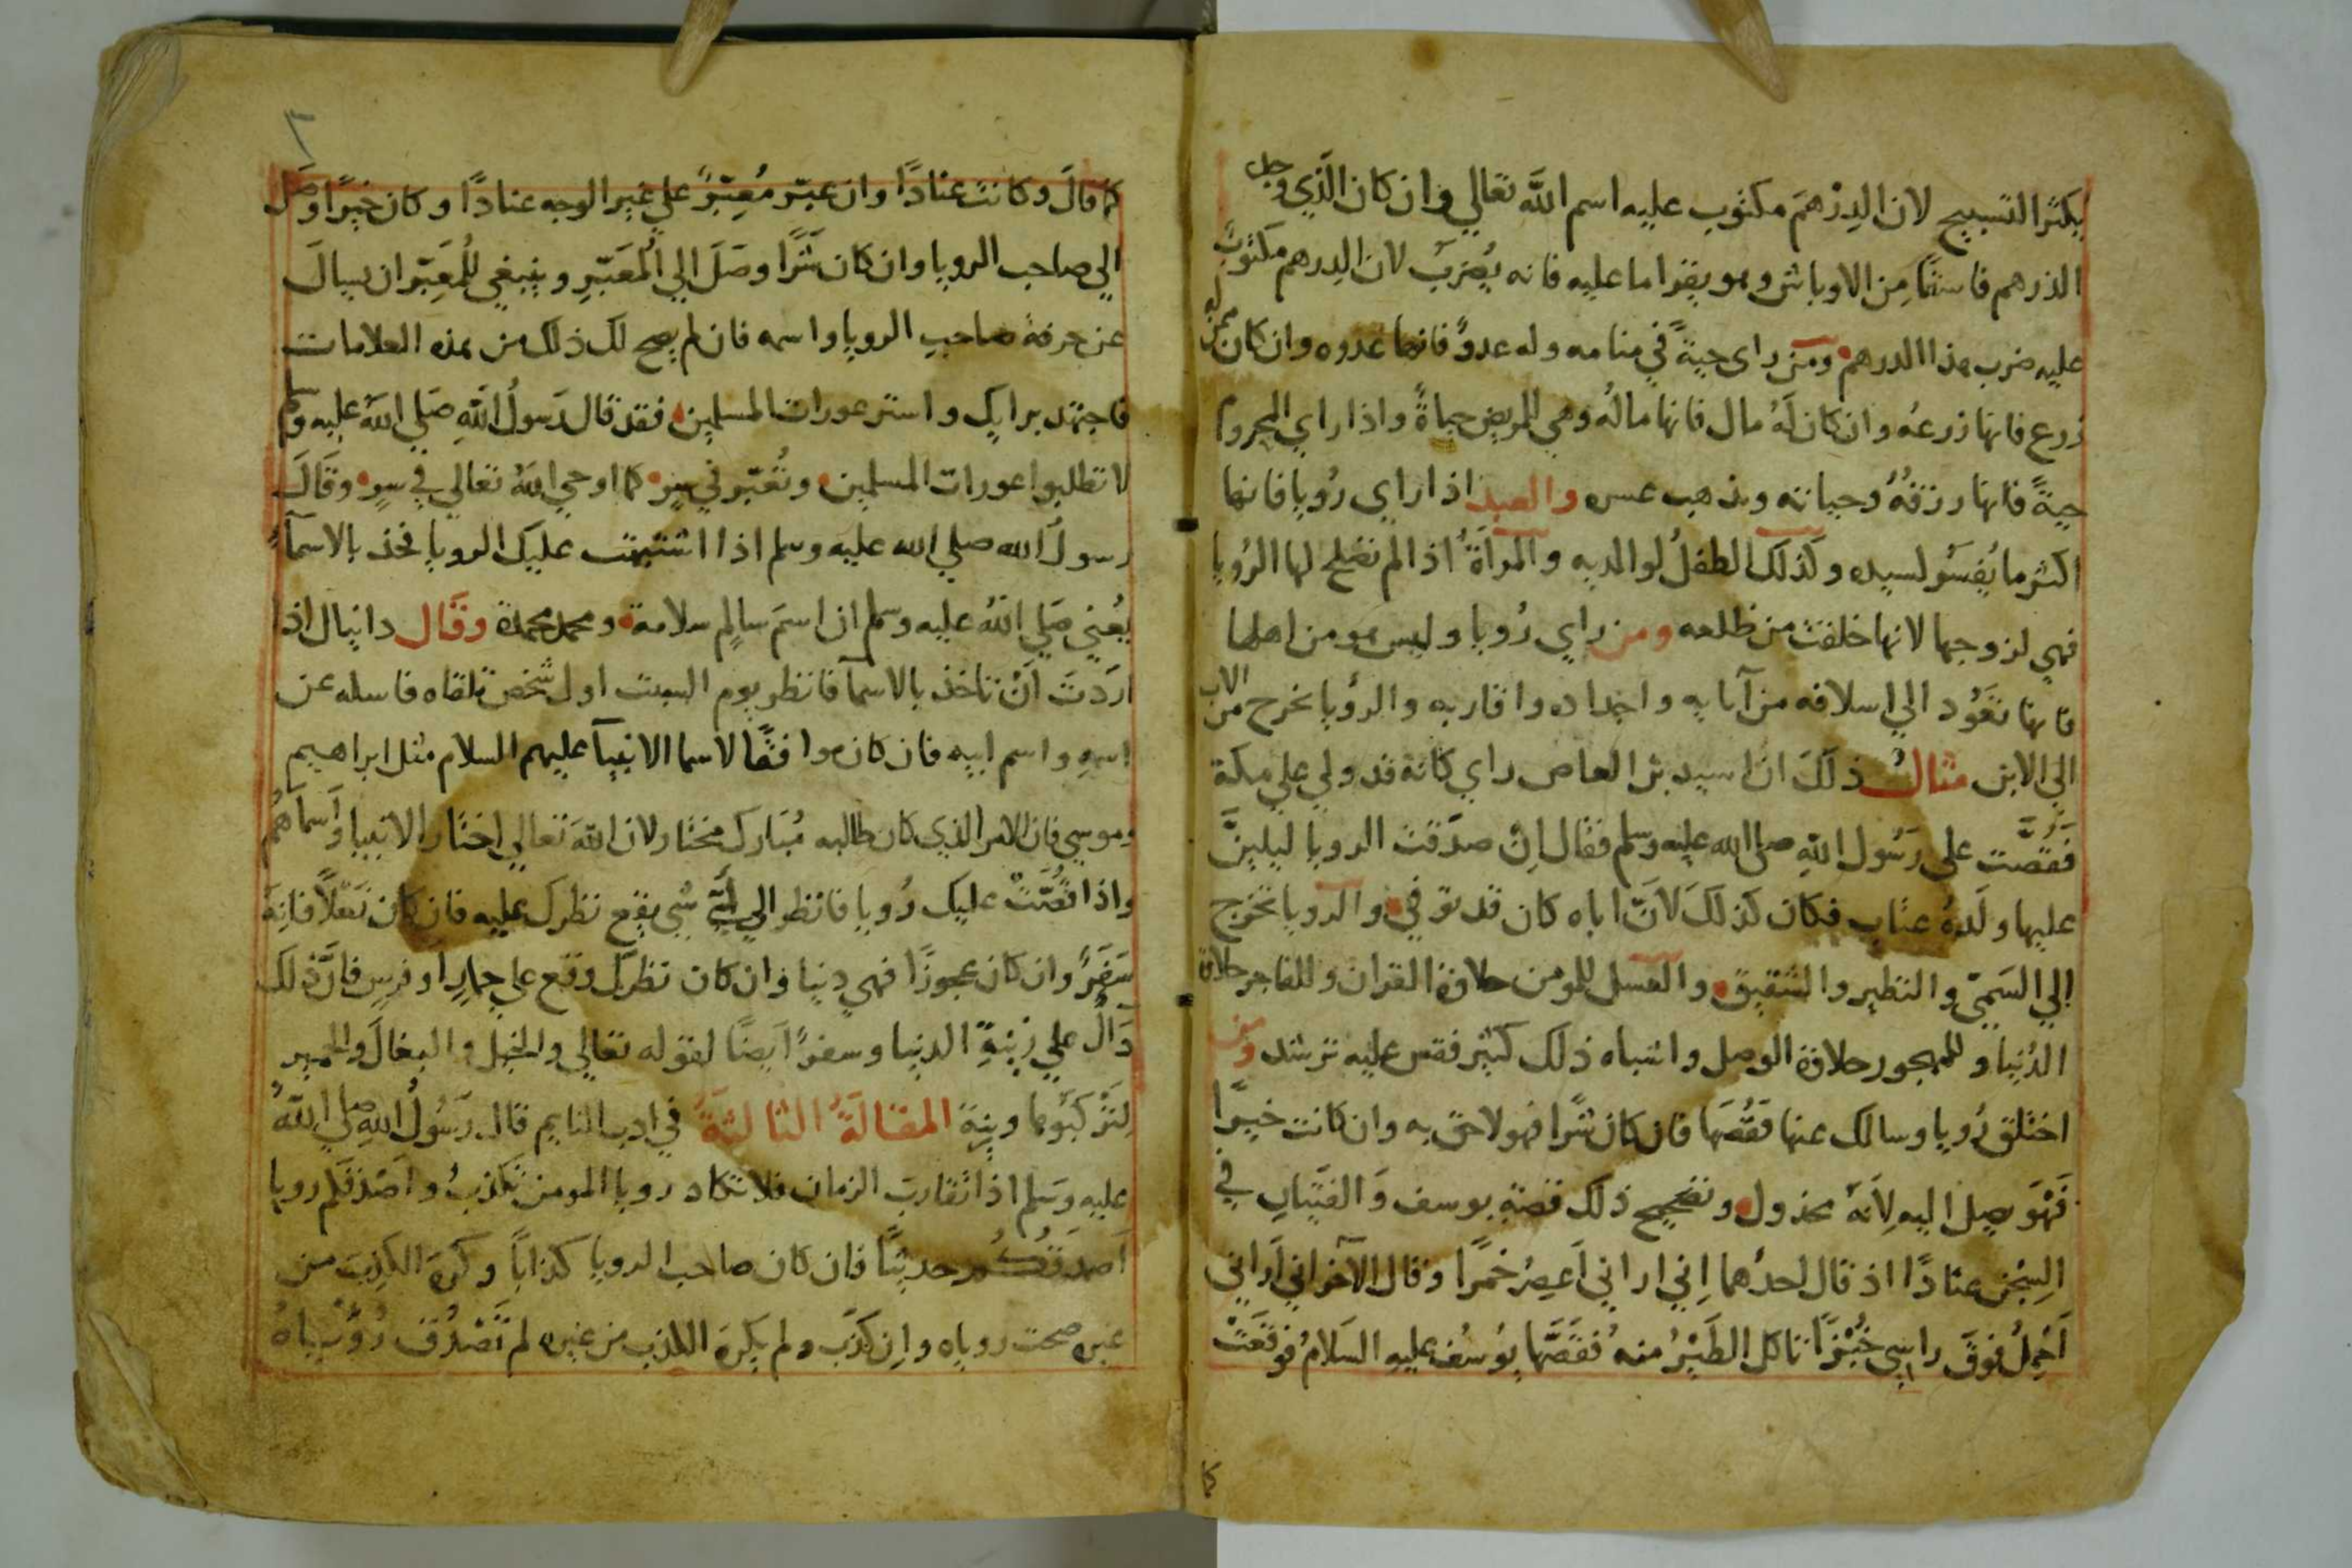 يكثر التسبيح لان الدِرْهَمَ مكتوب عليه اسم اللَّه تعالي وان كان الَّذي وجد
الدرهم فاسقًا مِن الاوباش وهو يقرا ما عليه فانه يُضرَبُ لان الدرهم مكتوبٌ
عليه ضرب هذا الدرهم ومن راى حيةً في منامه وله عدوٌّ فانها عدوه وان كان ممن له
زرع فانها زرعهُ وان كان لَهُ مال فانها مالُه وهي للمريض حياةً واذا راي المحروم
حيةً فانها رزقهُ وحياته ويذهب عسره والعبد اذا راي رُويا فانها
اكثر ما يُفسَّر لسيده وكَذلك الطفلُ لوالديه والمراَةُ اذا لم تصلح لها الرُويا
فهي لزوجها لانها خلقت من ظلعه ومن راي رُويا وليس هو من اهلها
فانها تعُود الي اسلافه من آبايه واجداده واقاربه والرؤيا تخرج من الاب
الي الابن مثالُ ذلَكَ ان اسيد بن العاص راي كانه قد ولي علي مكة
فَقُصَّت على رَسُول اللّهِ صلى الله عليه وسلم فقال اِنْ صدَقت الرويا ليلينَّ
عليها ولَدهُ عتاب فكان كذلكَ لانّ اباه كان قد توفي والرويا تخرج
الي السَميّ والنظير والشقيق والعسل للمومن حلاوة القران وللفاجر حلاوة
الدُنيا وللمهجور حلاوة الوصل واشباه ذلك كثير فقس عليه ترشد ومن
اختلق رُويا وسالك عنها فَقُصَّها فان كان شرًا فهو لاحق به وان كانت خيرًا
فَهْوَ يصل اليه لِانَهُ مخذول وتصحيح ذلك قصة يوسف وَالفتَيانِ في
السِجْن عنادًا اذ قال احدُهما اِني اراني اَعصِرُ خمرًا وقال الآخر اني اَراني
اَحْمِلُ فوقَ راسِي خُبْزًا تاكل الطَيْرُ منه فقَصَّها يُوسُف عليهِ السَلامُ فوقعَتْ
كما
كما قالَ وكانت عنادًا وان عبّر مُعبِّرٌ علي غير الوجه عنادًا وكان خيرًا وصَل
الي صاحب الرويا وان كان شَرًّا وصَلَ الي المُعَبِّرِ وينبغي للمُعَبِّر ان يسالَ
عن حرفة صاحبِ الرويا واسمه فان لم يصح لك ذلك من هذه العلامات
فاجتهد برايك واستر عورات المسلمين فقد قال رَسولُ اللّهِ صَلي اللّه عليه وسلم
لا تطلبوا عورات المسلمين وتُعَبّر في سرٍ كما اوحي اللّهُ تعالي في سرٍ وقَالَ
رسولُ الله صلي الله عليه وسلم اذا اشتبهت عليك الرويا فخذ بالاسمآءِ
يعُني صَلي اللهُ عليه وسلم ان اسمَ سالمٍ سلامة ومحمد محمدة وقَال دانيال اذا
اردَتَ اَنْ تاخذ بالاسمآ فانظر يوم السبت اول شخص تلقاه فاسله عن
اسمِهِ واسم ابيه فان كان موافقًا لاسما الانبيآ عليهم السلام مثل ابراهيم
وموسي فان الامر الذي كان طالبه مُبَارك مختار لان اللّهَ تعالي اختار الانبيا واسماَهُم
واذا قُصَّتْ عليك رُويا فانظر الي اَيِّ شي يقع نظرك عليه فان كان نَعْلاً فانِهَ
سَفَرٌ وان كان عجوزًا فهي دنيا وان كان نظرك وقع علي حمارٍ او فرسٍ فانَّ ذلك
دَالٌ علي زينةِ الدنيا وسفرًا اَيضًا لقوله تعالي والخيل والبغالَ والحمير
لِتَرْكبُوها وزينة المقالَةُ الثالثةُ في ادب النايم قال رَسُولُ اللهِ صلي اللّهُ
عليه وَسَلم اذا تقارب الزمان فلا تكاد رويا المومن تكذبُ واَصْدَقكم رويا
اَصدَقكُم حديثًا فان كان صاحب الرويا كذابًا وكره الكذِبَ من
غيره صحت روياه واِن كذَب ولم يكره الكذب من غيره لم تَصْدُق رُؤْياهُ